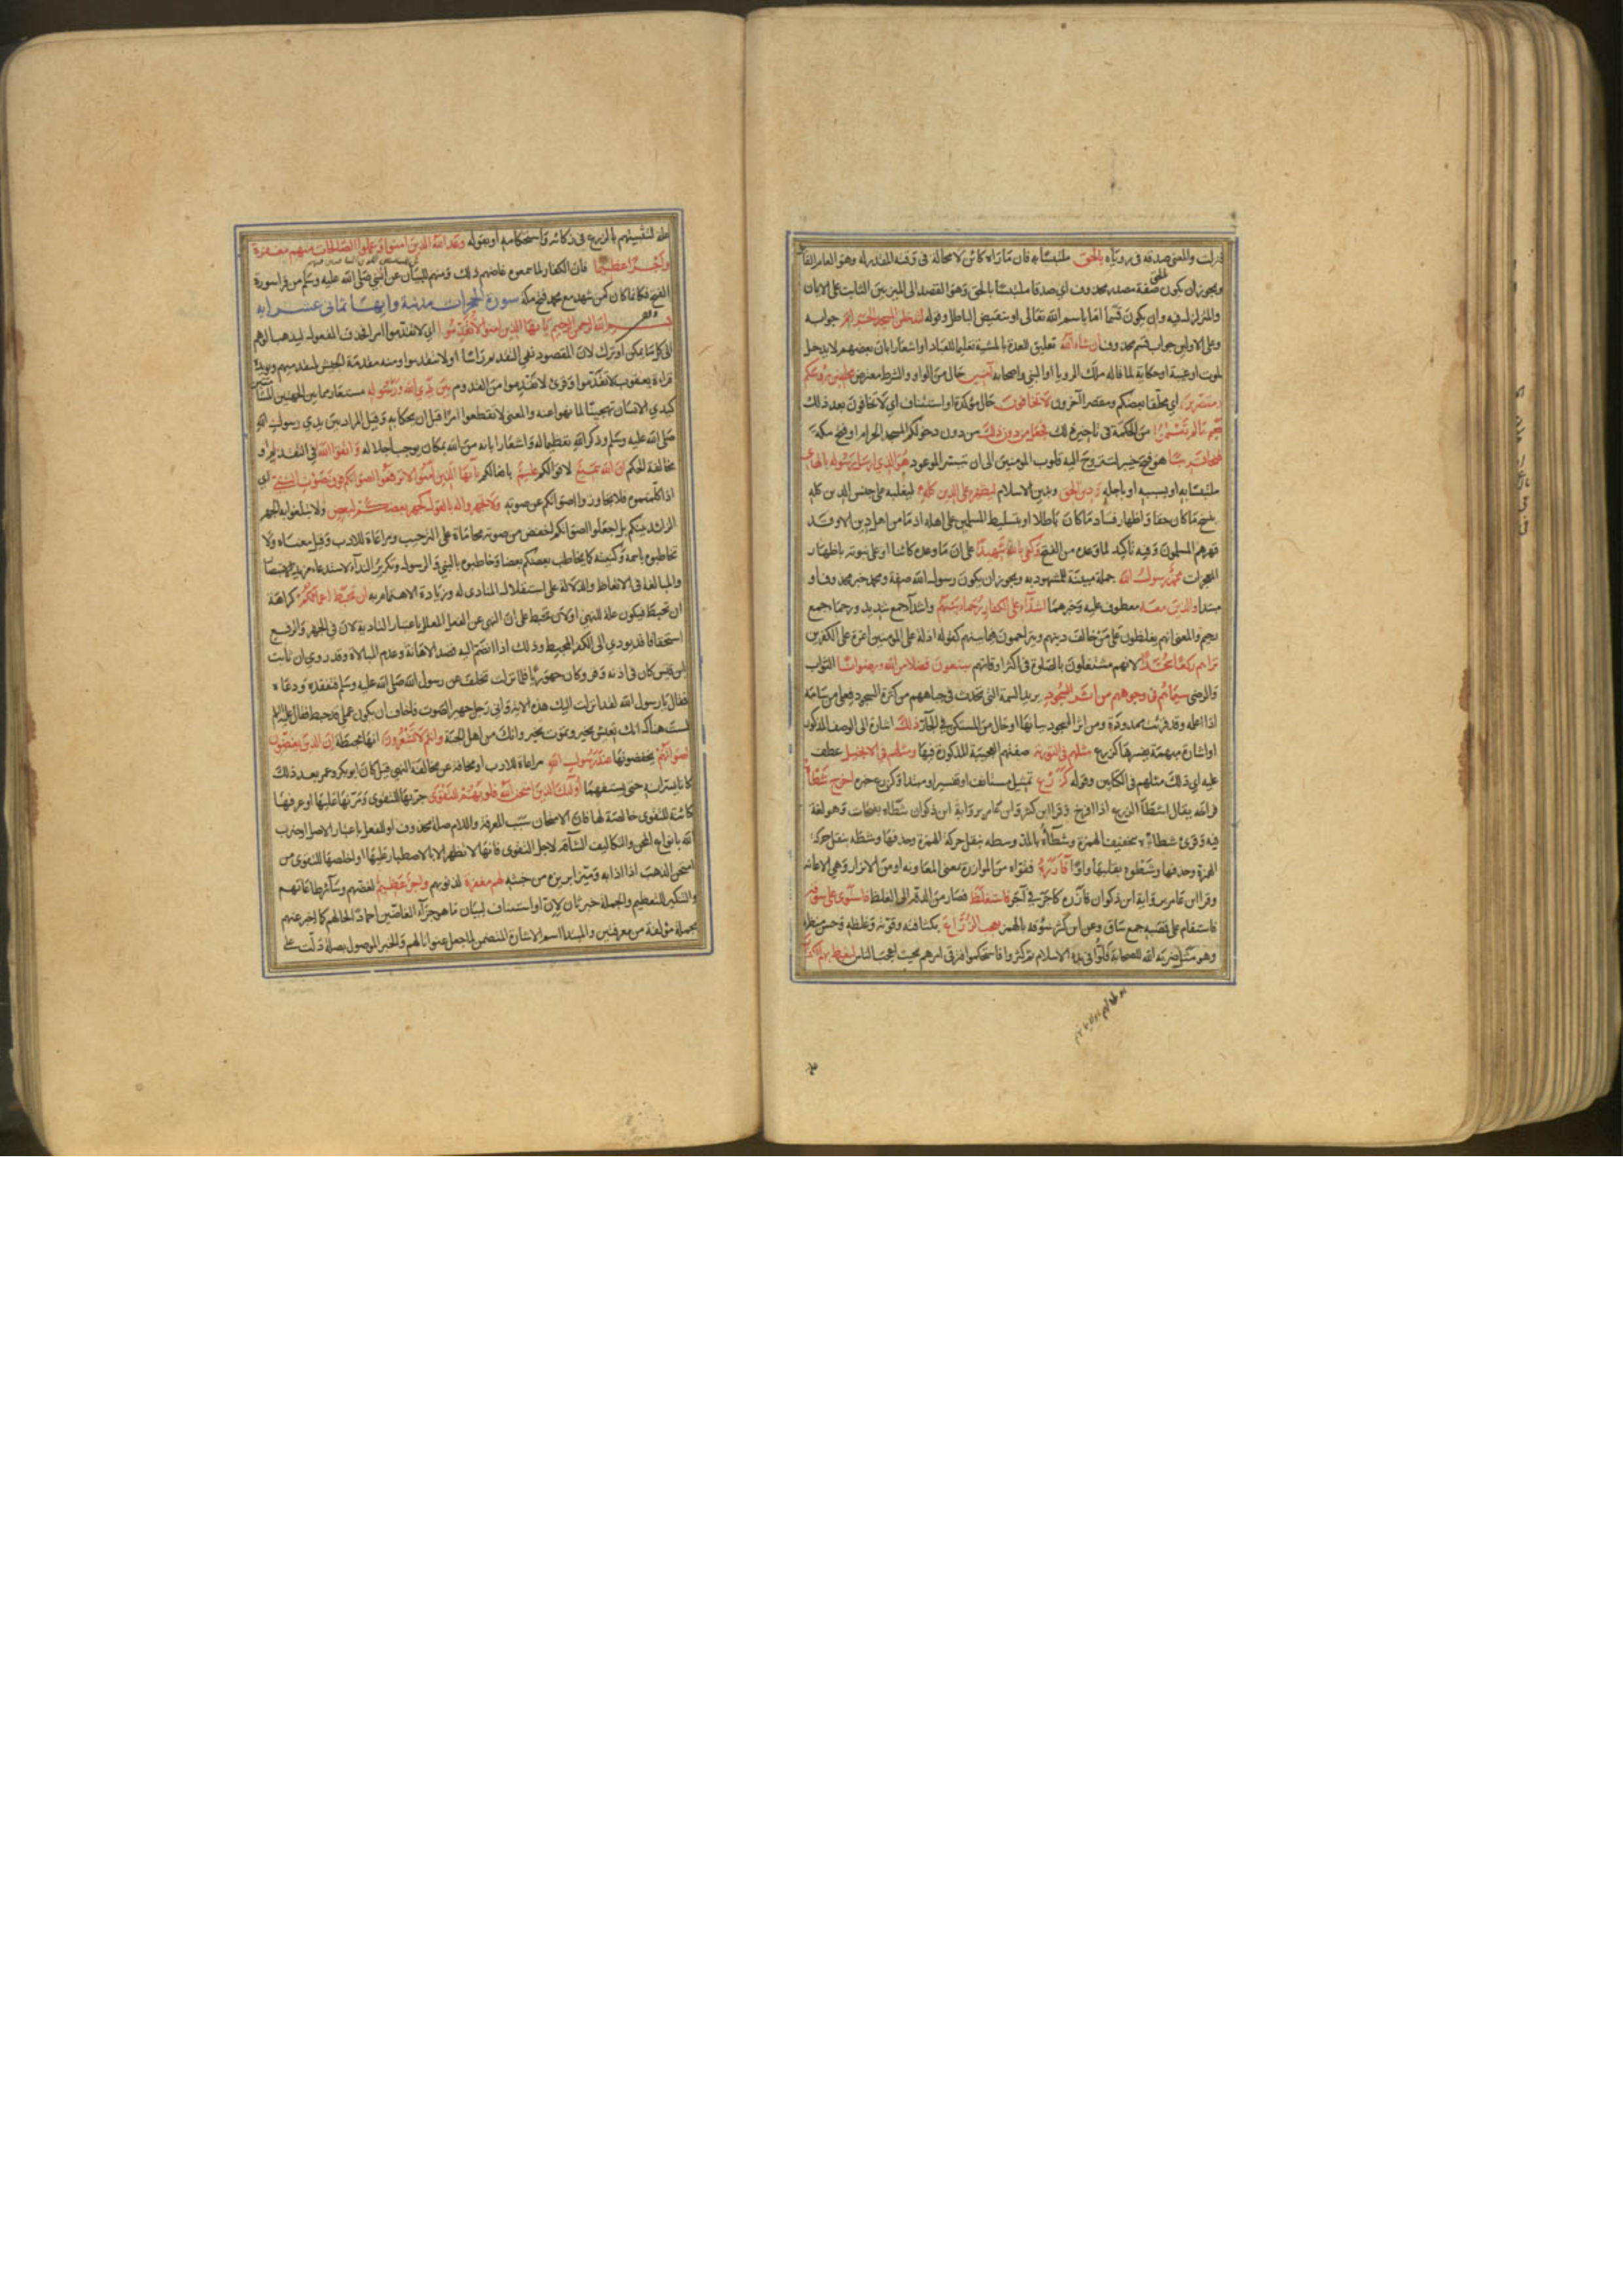 فنزلت والمعنى صدقه في رؤياه بالحق ملتبسا به فان ما رآه كائن لا محالة في وقته المقدر له وهو العام القا
ويجوز ان يكون بالحق صفة مصدر محذوف اي صدقا ملتبسا بالحق وهو القصد الى الميز بين الثابت على الايمان
والمتزلزل فيه وان يكون قسما اما باسم الله تعالى او بنقيض الباطل وقوله لتدخلن المسجد الحرام جوابه
وعلى الاولين جواب قسم محذوف ان شاء الله تعليق للعدة بالمشية تعليما للعباد او اشعارا بان بعضهم لا يدخل
لموت او غيبة او حكاية لما قاله ملك الرويا او النبي واصحابه آمنين حال من الواو والشرط معترض محلقين رؤسكم
ومقصرين اي محلقا بعضكم ومقصرا آخرون لا تخافون حال مؤكدة او استئناف اي لا تخافون بعد ذلك
فعلم ما لم تعلموا من الحكمة في تاخير ذلك فجعل من دون ذلك من دون دخولكم المسجد الحرام او فتح مكة
فتحا قريبا هو فتح خيبر لتستروح اليه قلوب المومنين الى ان يتيسر الموعود هو الذي ارسل رسوله بالهدى
ملتبسا به او بسببه او باجله ودين الحق وبدين الاسلام ليظهره على الدين كله ليغلبه على جنس الدين كله
بنسخ ما كان حقا واظهار فساد ما كان باطلا او بتسليط المسلمين على اهله اذ ما من اهل دين الا وقد
قهرهم المسلمون وفيه تأكيد لما وعده من الفتح وكفى بالله شهيدا على ان ما وعده كائن او على نبوته باظهار
المعجزات محمد رسول الله جملة مبينة للمشهود به ويجوز ان يكون رسول الله صفة ومحمد خبر محذوف او
مبتدا والذين معه معطوف عليه وخبرهما اشداء على الكفار رحماء بينهم واشداء جمع شديد ورحماء جمع
رحيم والمعنى انهم يغلظون على من خالف دينهم ويتراحمون فيما بينهم كقوله اذلة على المومنين اعزة على الكفرين
تراهم ركعا سجدا لانهم مشتغلون بالصلوة في اكثر اوقاتهم يبتغون فضلا من الله ورضوانا الثواب
والرضى سيماهم في وجوههم من اثر السجود يريد السمة التي تحدث في جباههم من كثرة السجود فعلى من سامه
اذا اعلمه وقد قرئت ممدودة ومن اثر السجود بيانها او حال من المستكن في الجار ذلك اشارة الى الوصف المذكور
او اشارة مبهمة يفسرها كزرع مثلهم في التورية صفتهم العجيبة المذكورة فيها ومثلهم في الانجيل عطف
عليه اي ذلك مثلهم في الكتابين وقوله كزرع تمثيل مستانف او تفسير او مبتدا وكزرع خبره اخرج شطأه
فراخه يقال اشطأ الزرع اذا افرخ وقرا ابن كثير وابن عامر برواية ابن ذكوان شطأه بفتحات وهو لغة
فيه وقرئ شطاه بتخفيف الهمزة وشطاءه بالمد وشطه بنقل حركة الهمزة وحذفها وشطه بنقل حركة
الهمزة وحذفها وشطوه بقلبها واوا فآزره فقواه من الموازرة بمعنى المعاونة او من الايزار وهي الاعانة
وقرا ابن عامر برواية ابن ذكوان فأزره كاجره في آجره فاستغلظ فصار من الدقة الى الغلظ فاستوى على سوقه
فاستقام على قصبه جمع ساق وعن ابن كثير سؤقه بالهمز يعجب الزراع بكثافته وقوته وغلظه وحسن منظره
وهو مثل ضربه الله للصحابة قلوا في بدء الاسلام ثم كثروا فاستحكموا فترقى امرهم بحيث اعجب الناس ليغيظ بهم الكفار
علة لتشبيههم بالزرع في زكائه واستحكامه او بقوله وعد الله الذين امنوا وعملوا الصالحات منهم مغفرة
واجرا عظيما فان الكفار لما سمعوه غاظهم ذلك ومنهم للبيان عن النبي صلى الله عليه وسلم من قرا سورة
الفتح فكانما كان ممن شهد مع محمد فتح مكة سورة الحجرات مدنية وايها ثماني عشر اية
بسم الله الرحمن الرحيم يا ايها الذين امنوا لا تقدموا اي لا تقدموا امرا فحذف المفعول ليذهب الوهم
الى كل ما يمكن او ترك لان المقصود نفي التقدم راسا او لا تتقدموا ومنه مقدمة الجيش لمتقدميهم ويؤيده
قراءة يعقوب لا تقدموا وقرئ لا تقدموا من القدوم بين يدي الله ورسوله مستعار مما بين الجهتين المسامتتين
ليدي الانسان تهجينا لما نهوا عنه والمعنى لا تقطعوا امرا قبل ان يحكما به وقيل المراد بين يدي رسول الله
صلى الله عليه وسلم وذكر الله تعظيما له واشعارا بانه من الله بمكان يوجب اجلاله واتقوا الله في التقديم او
مخالفة الحكم ان الله سميع لاقوالكم عليم بافعالكم يا ايها الذين آمنوا لا ترفعوا اصواتكم فوق صوت النبي اي
اذا كلمتموه فلا تجاوزوا اصواتكم عن صوته ولا تجهروا له بالقول كجهر بعضكم لبعض ولا تبلغوا به الجهر
الزائد بينكم بل اجعلوا اصواتكم اخفض من صوته محاماة على الترحيب ومراعاة للادب وقيل معناه ولا
تخاطبوه باسمه وكنيته كما يخاطب بعضكم بعضا وخاطبوه بالنبي والرسول وتكرير النداء لاستدعاء مزيد
والمبالغة في الاتعاظ والدلالة على استقلال المنادى له وزيادة الاهتمام به ان تحبط اعمالكم كراهة
ان تحبط فيكون علة للنهي او لان تحبط على ان النهي عن الفعل المعلل باعتبار التادية لان في الجهر والرفع
استخفافا قد يودي الى الكفر المحبط وذلك اذا انضم اليه قصد الاهانة وعدم المبالاة وقد روي ان ثابت
ابن قيس كان في اذنه وقر وكان جهوريا فلما نزلت تخلف عن رسول الله صلى الله عليه وسلم فتفقده ودعاه
فقال يا رسول الله لقد انزلت اليك هذه الاية واني رجل جهير الصوت فاخاف ان يكون عملي قد حبط فقال عليه السلم
لست هناك انك تعيش بخير وتموت بخير وانك من اهل الجنة وانتم لا تشعرون انها محبطة ان الذين يغضون
اصواتهم يخفضونها عند رسول الله مراعاة للادب او مخافة عن مخالفة النهي قيل كان ابو بكر وعمر بعد ذلك
كانا يسرانه حتى يستفهمهما أولئك الذين امتحن الله قلوبهم للتقوى جربها للتقوى ومرنها عليها او عرفها
كائنة للتقوى خالصة لها فان الامتحان سبب المعرفة واللام صلة محذوف او للفعل باعتبار الاصل او ضرب
الله بانواع المحن والتكاليف الشاقة لاجل التقوى فانها لا تظهر الا بالاصطبار عليها او اخلصها للتقوى من
امتحن الذهب اذا اذابه وميز ابريزه من خبثه لهم مغفرة لذنوبهم واجر عظيم لغضهم وسائر طاعاتهم
والتنكير للتعظيم والجملة خبر ثان لان او استئناف لبيان ما هو جزاء الغاضين احمادا لحالهم كما اخبر عنهم
بجملة مؤلفة من معرفتين والمبتدا اسم الاشارة المتضمن لما جعل عنوانا لهم والخبر الموصول بصلة دلت على